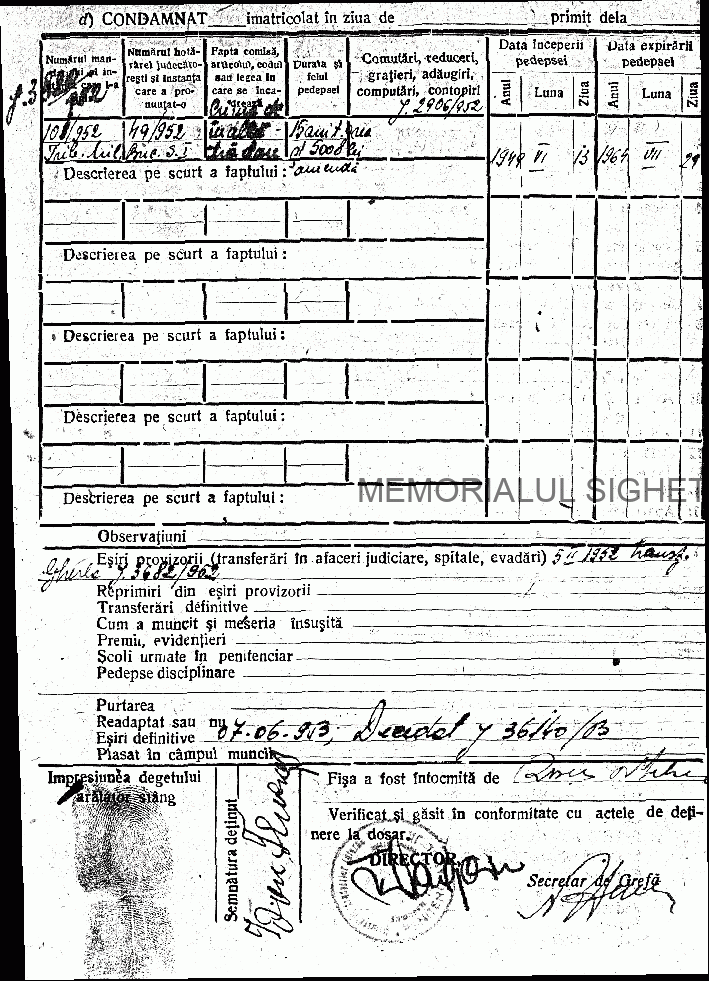 d) CONDAMNAT imatricolat în ziua de primit dela
Numărul man-
Numărul hotă-
rârei judecăto-
rești și instanța
care a pro-
nunțat-o
Fapta comisă,
articolul, codul
sau legea în
care se înca-
drează
Durata și
felul
pedepsei
Comutări, reduceri,
grațieri, adăugiri,
computări, contopiri
J. 2906/952
Data începerii
pedepsei
Data expirării
pedepsei
Anul Luna Ziua Anul Luna Ziua
108/952 49/952 Crimă de înaltă trădare 15 ani t. grea
Trib. Mil. Buc. S. I 5000 lei amendă
1949 VI 13 1964 VII 29
Descrierea pe scurt a faptului:
Descrierea pe scurt a faptului:
Descrierea pe scurt a faptului:
Descrierea pe scurt a faptului:
Descrierea pe scurt a faptului:
MEMORIALUL SIGHET
Observațiuni
Eșiri provizorii (transferări în afaceri judiciare, spitale, evadări) 5 1952 transf.
Gherla J 3682/952
Reprimiri din eșiri provizorii
Transferări definitive
Cum a muncit și meseria însușită
Premii, evidențieri
Școli urmate în penitenciar
Pedepse disciplinare
Purtarea
Readaptat sau nu
Eșiri definitive 07-06-953, Decedat J 36140/B
Plasat în câmpul muncii
Impresiunea degetului
arătător stâng
Semnătura deținut
Fișa a fost întocmită de
Verificat și găsit în conformitate cu actele de deți-
nere la dosar.
DIRECTOR,
Secretar de Grefă